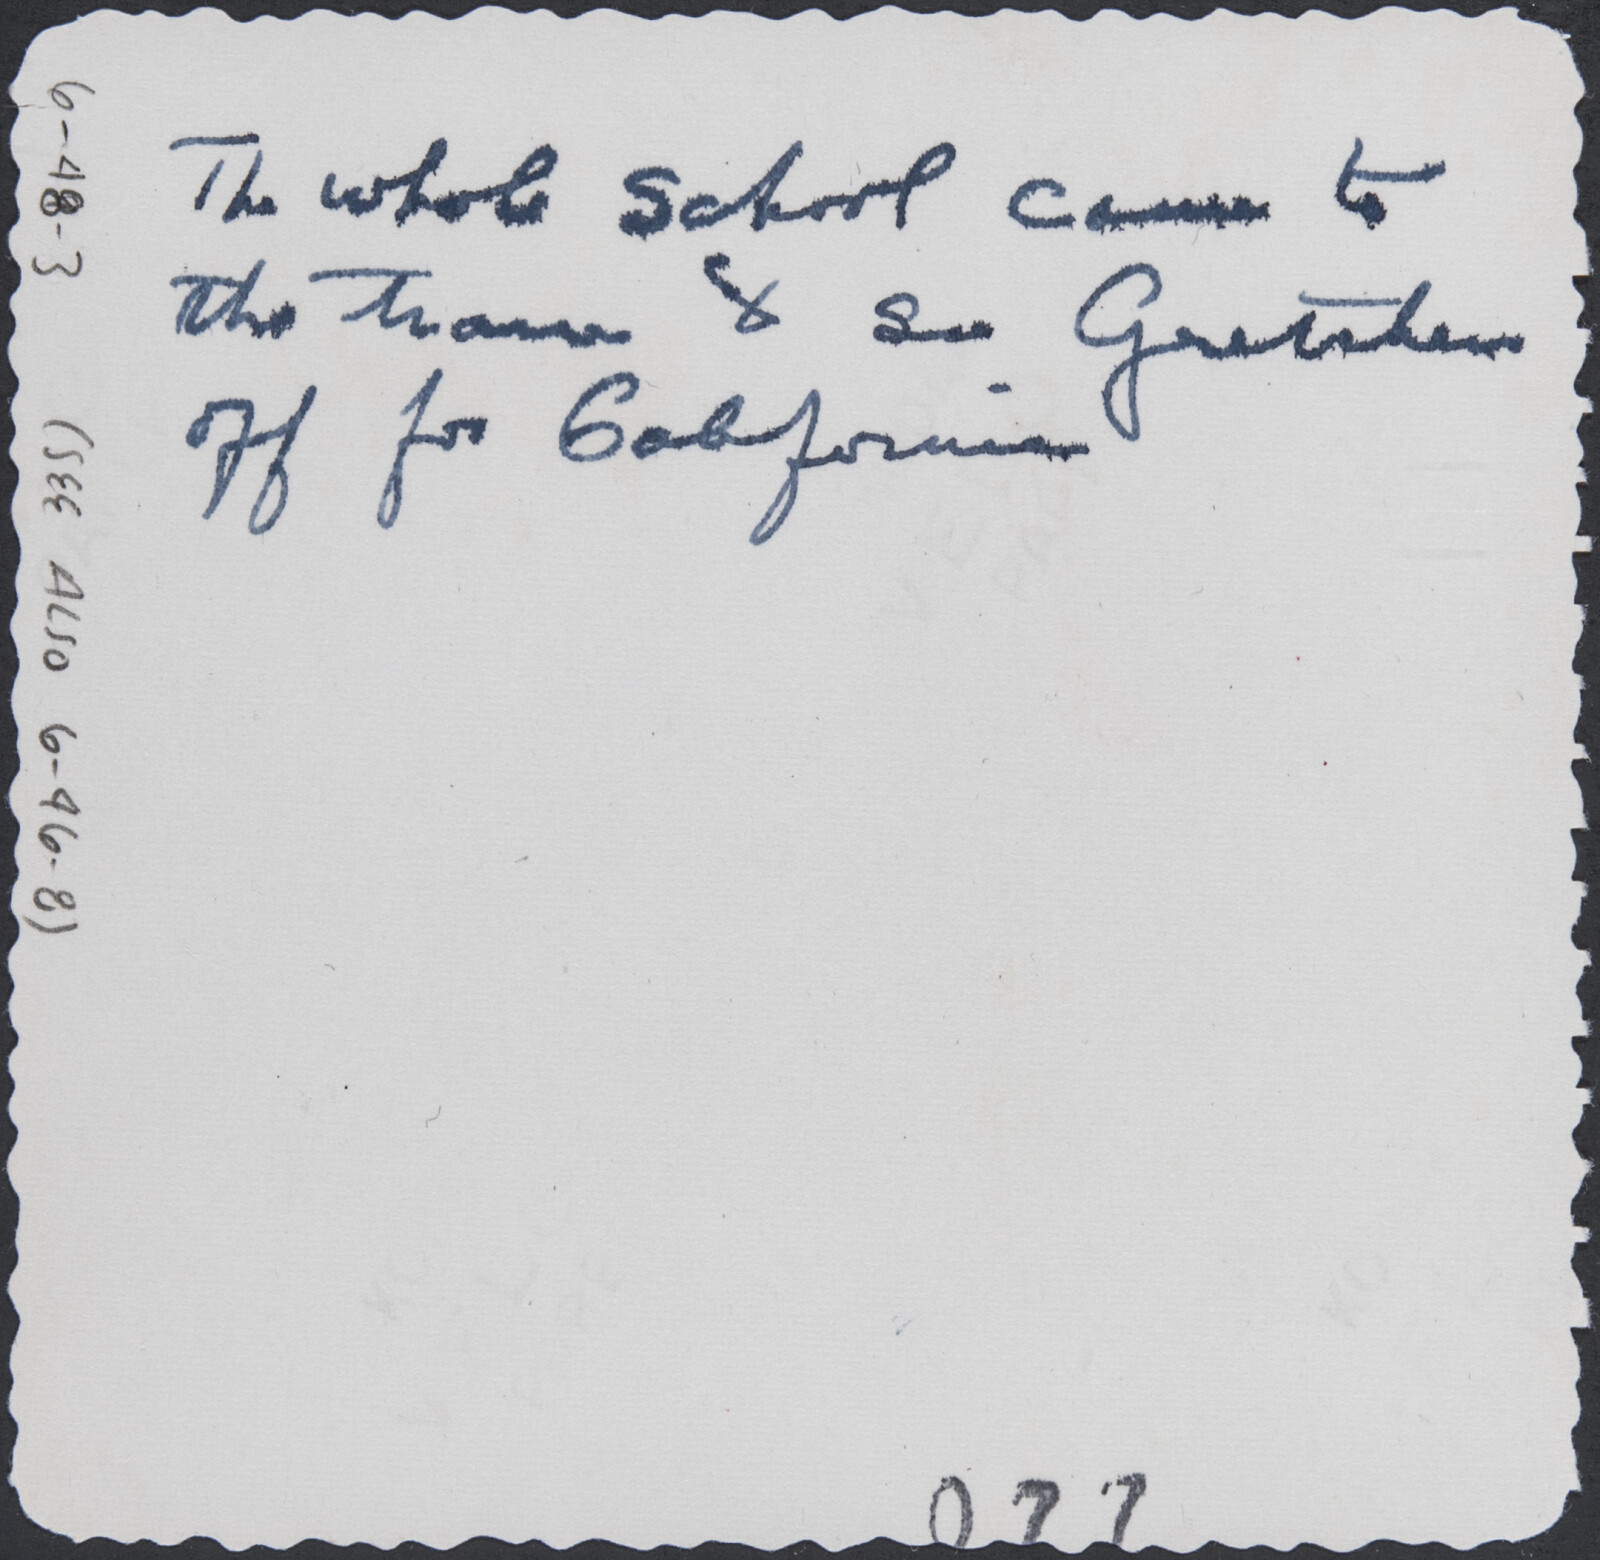 The whole School came to
the train & see Gretchen
off for California
6-48-3 (SEE ALSO 6-46-8)
077